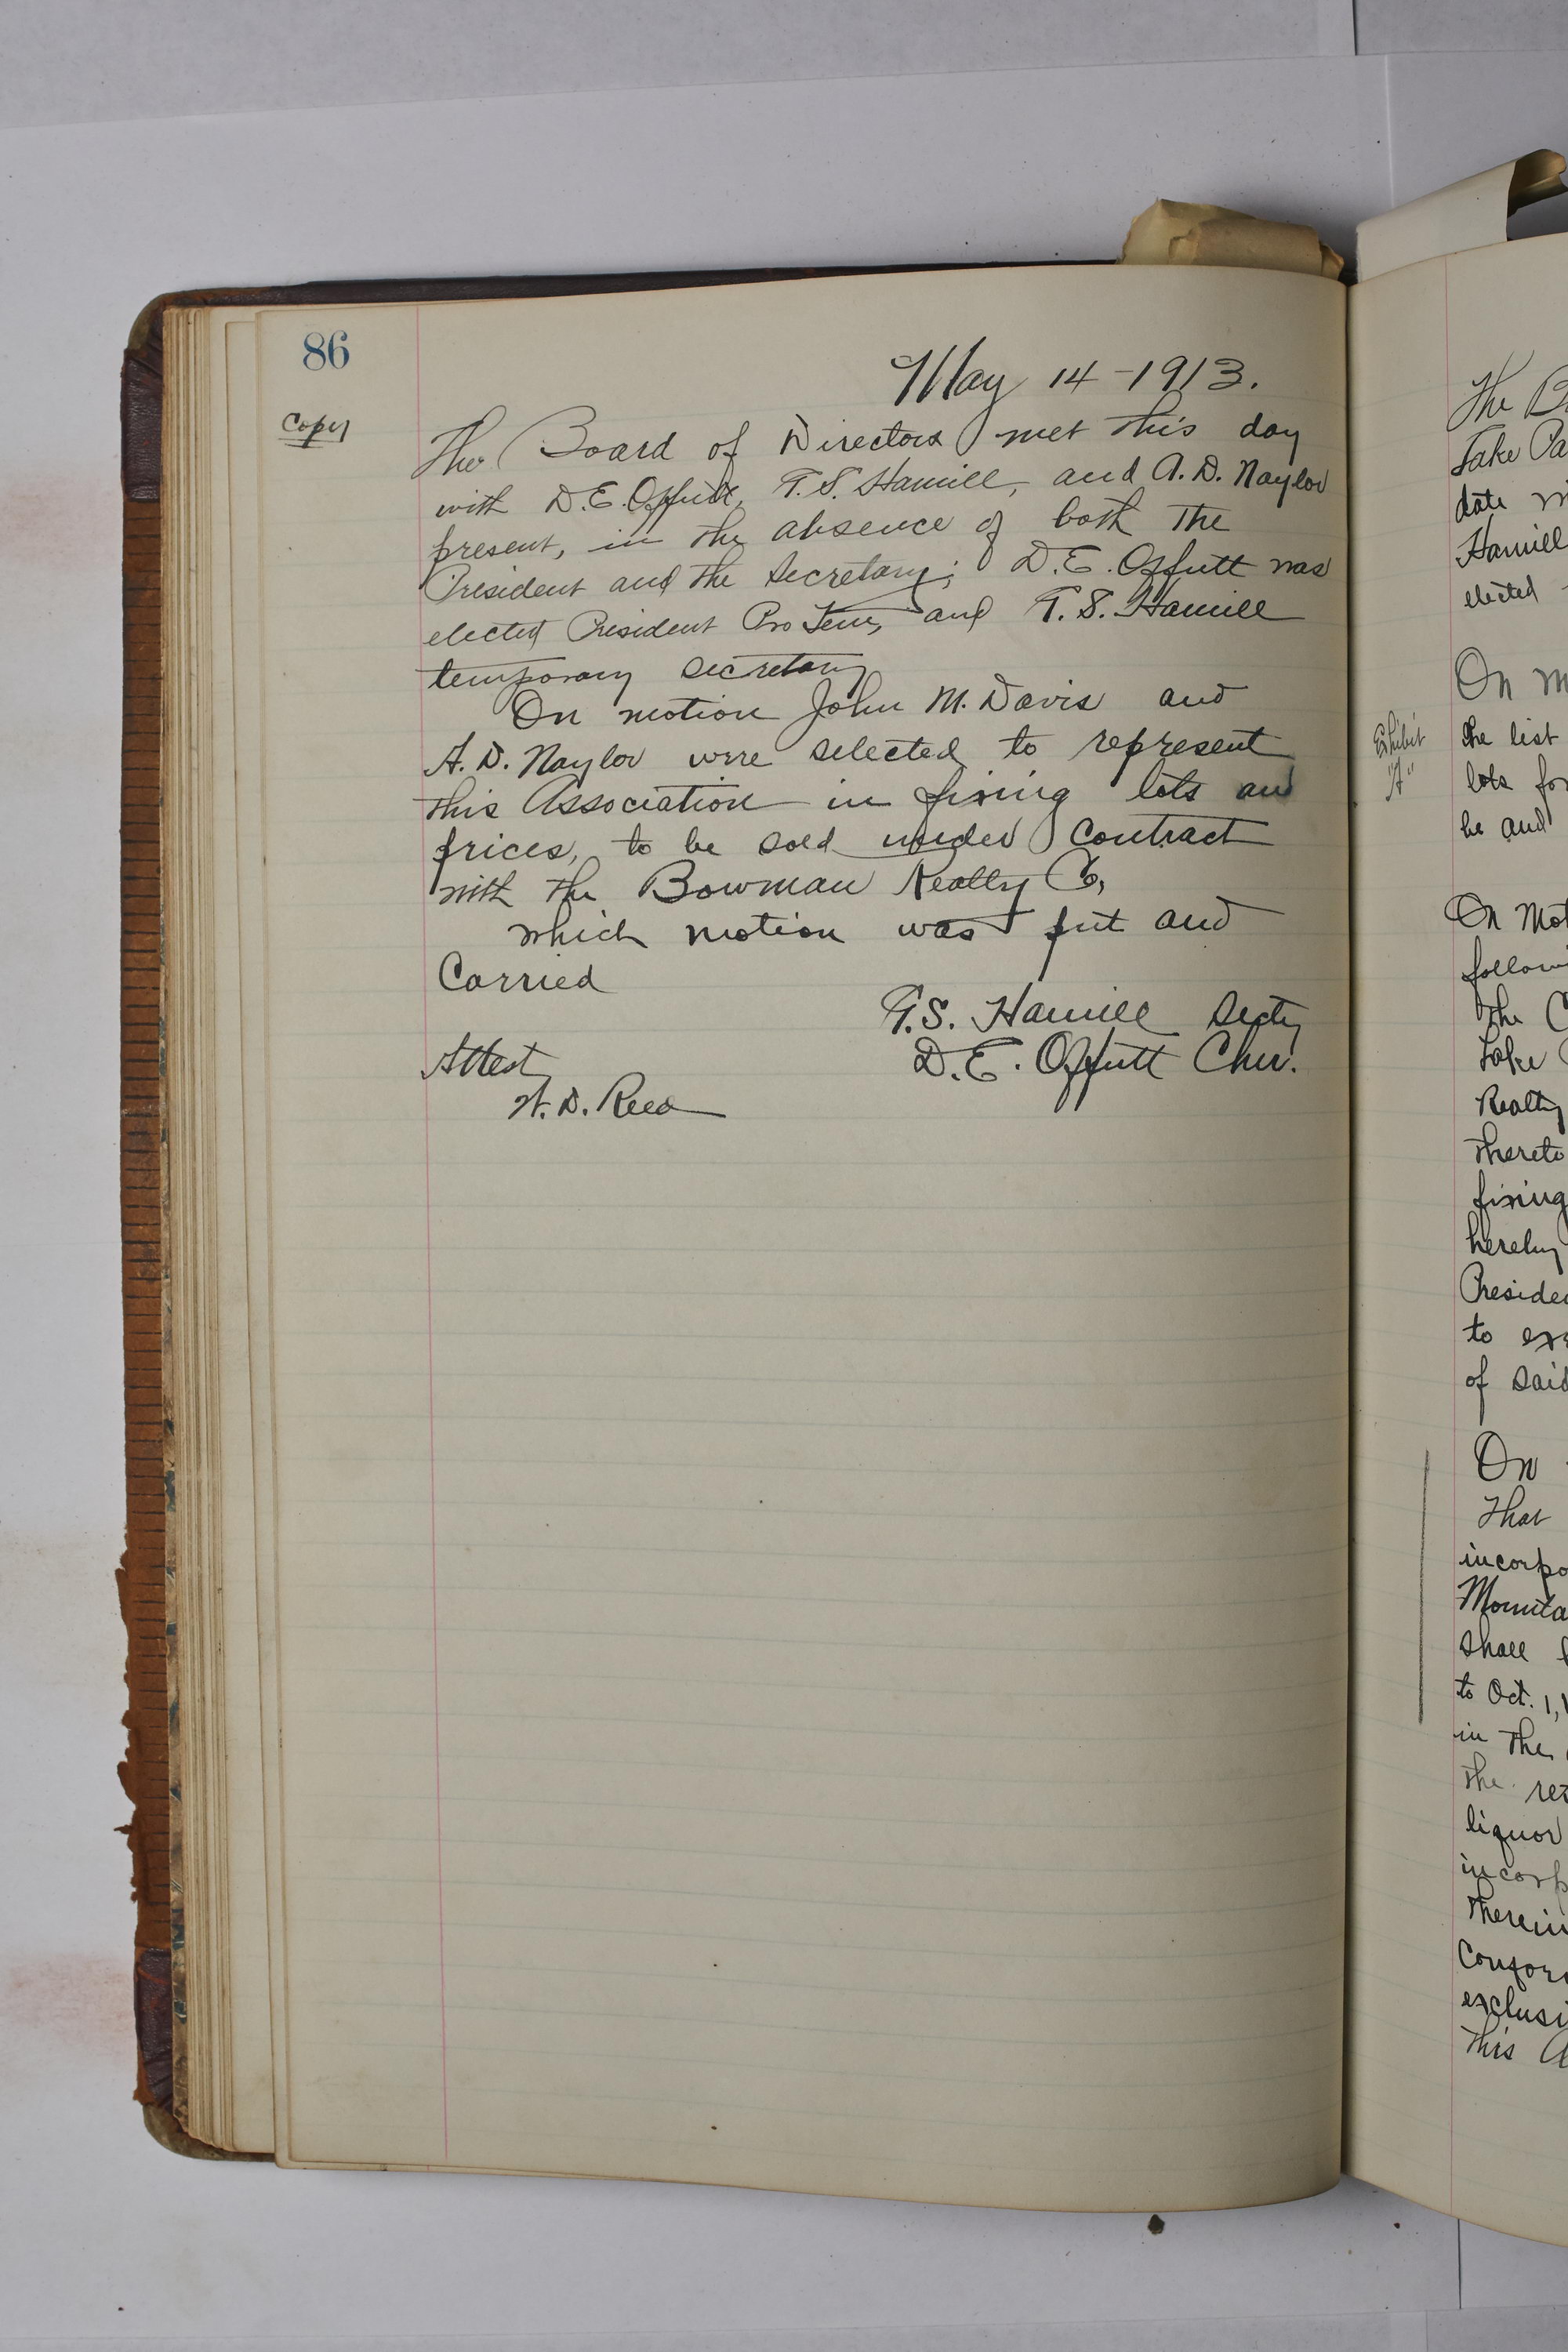 86
May 14-1913.
Copy
The Board of Directors met this day
with D.E. Offutt, G.S. Hamill, and A.D. Naylor
present, in the absence of both the
President and the Secretary; D.E. Offutt was
elected President Pro Tem, and G.S. Hamill
temporary secretary
On motion John M. Davis and
A.D. Naylor were selected to represent
this Association in fixing lots and
prices, to be sold under contract
with the Bowman Realty Co,
which motion was put and
Carried
G.S. Hamill Secty
D.E. Offutt Chr.
Attest
W.D. Reed
The B
Lake Pa
date
Hamill
elected
On m
Exhibit
"A"
the list
lots for
be and
On Mot
followi
The C
Lake
Realty
thereto
fixing
hereby
Preside
to exe
of said
On
That
incorpo
Mounta
shall
to Oct. 1,
in the
the res
liquor
incorp
therein
Confor
exclusi
this A